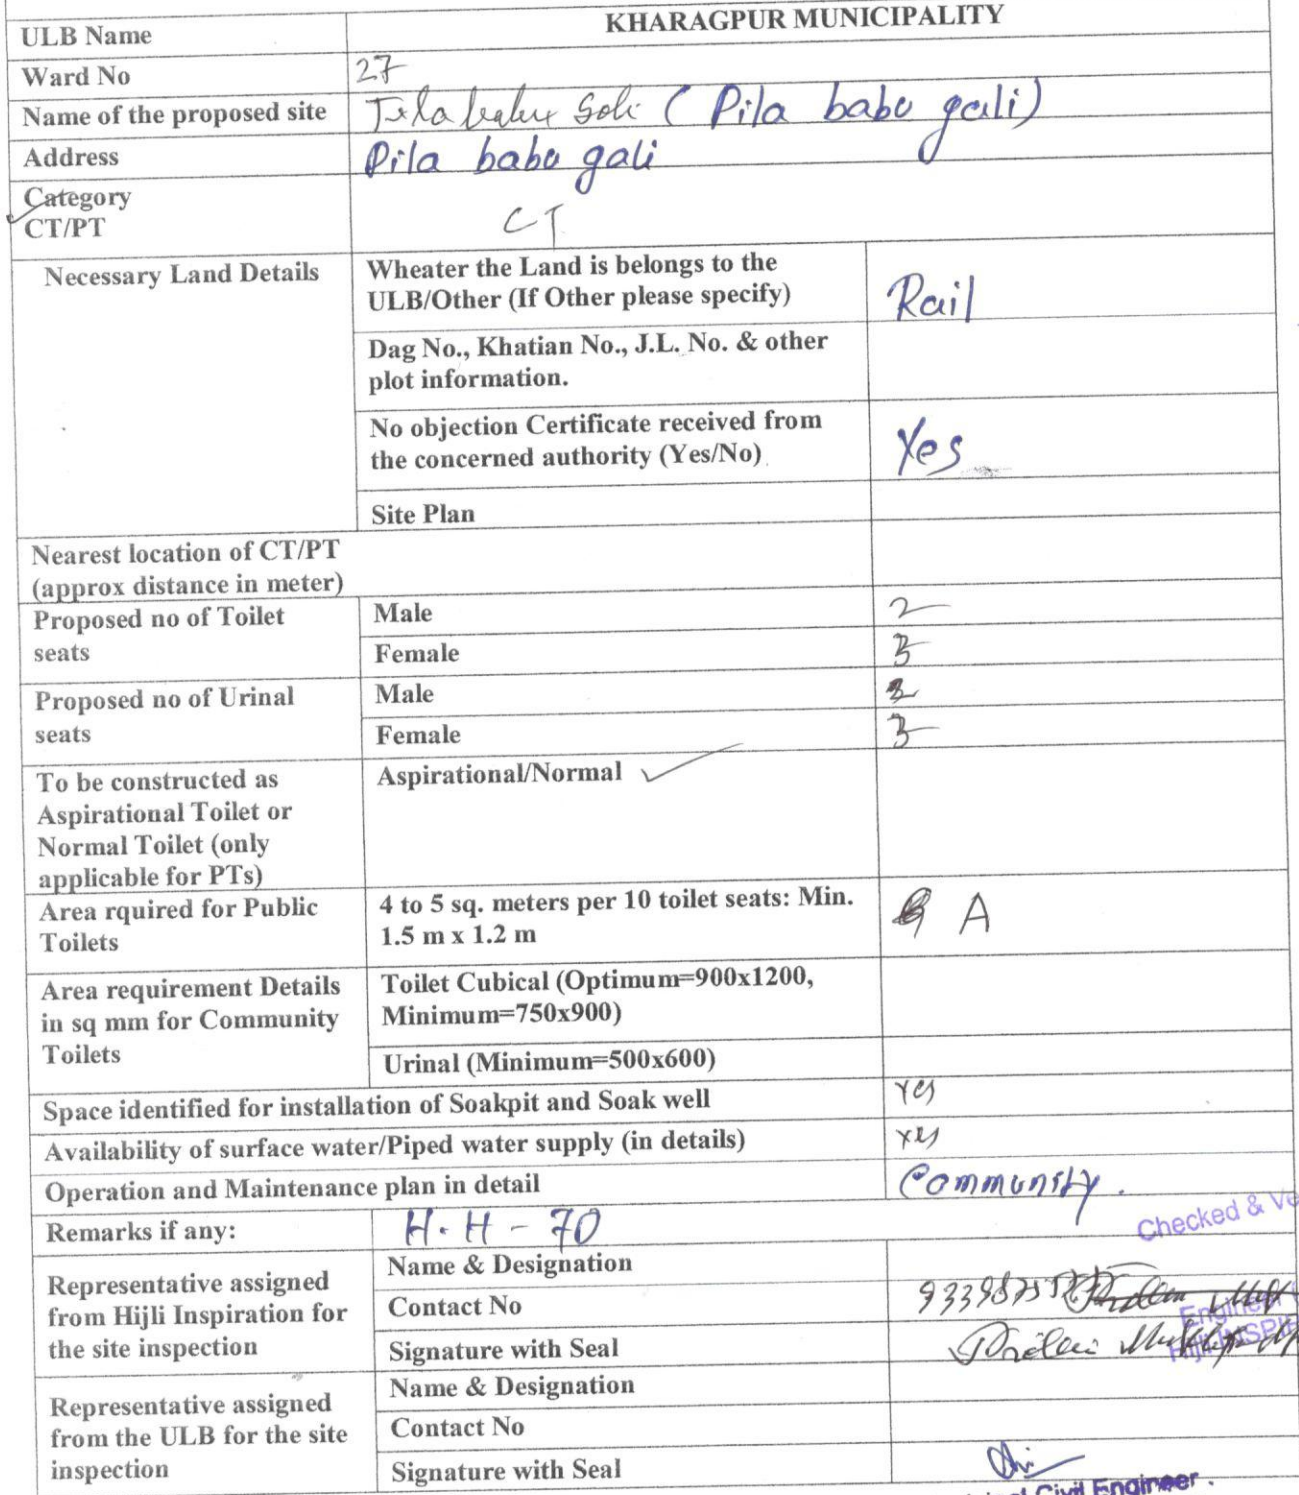 ULB Name KHARAGPUR MUNICIPALITY
Ward No 27
Name of the proposed site (Pila babu gali)
Address Pila babu gali
Category
CT/PT CT
Necessary Land Details Wheater the Land is belongs to the
ULB/Other (If Other please specify) Rail
Dag No., Khatian No., J.L. No. & other
plot information.
No objection Certificate received from
the concerned authority (Yes/No) Yes
Site Plan
Nearest location of CT/PT
(approx distance in meter)
Proposed no of Toilet
seats
Male 2
Female 3
Proposed no of Urinal
seats
Male
Female 3
To be constructed as
Aspirational Toilet or
Normal Toilet (only
applicable for PTs)
Aspirational/Normal
Area rquired for Public
Toilets
4 to 5 sq. meters per 10 toilet seats: Min.
1.5 m x 1.2 m
A
Area requirement Details
in sq mm for Community
Toilets
Toilet Cubical (Optimum=900x1200,
Minimum=750x900)
Urinal (Minimum=500x600)
Space identified for installation of Soakpit and Soak well Yes
Availability of surface water/Piped water supply (in details) yes
Operation and Maintenance plan in detail Community.
Remarks if any: H.H - 70
Checked & Ve
Representative assigned
from Hijli Inspiration for
the site inspection
Name & Designation
Contact No
Signature with Seal
Engineer
Hijli INSPI
Representative assigned
from the ULB for the site
inspection
Name & Designation
Contact No
Signature with Seal
Civil Engineer.